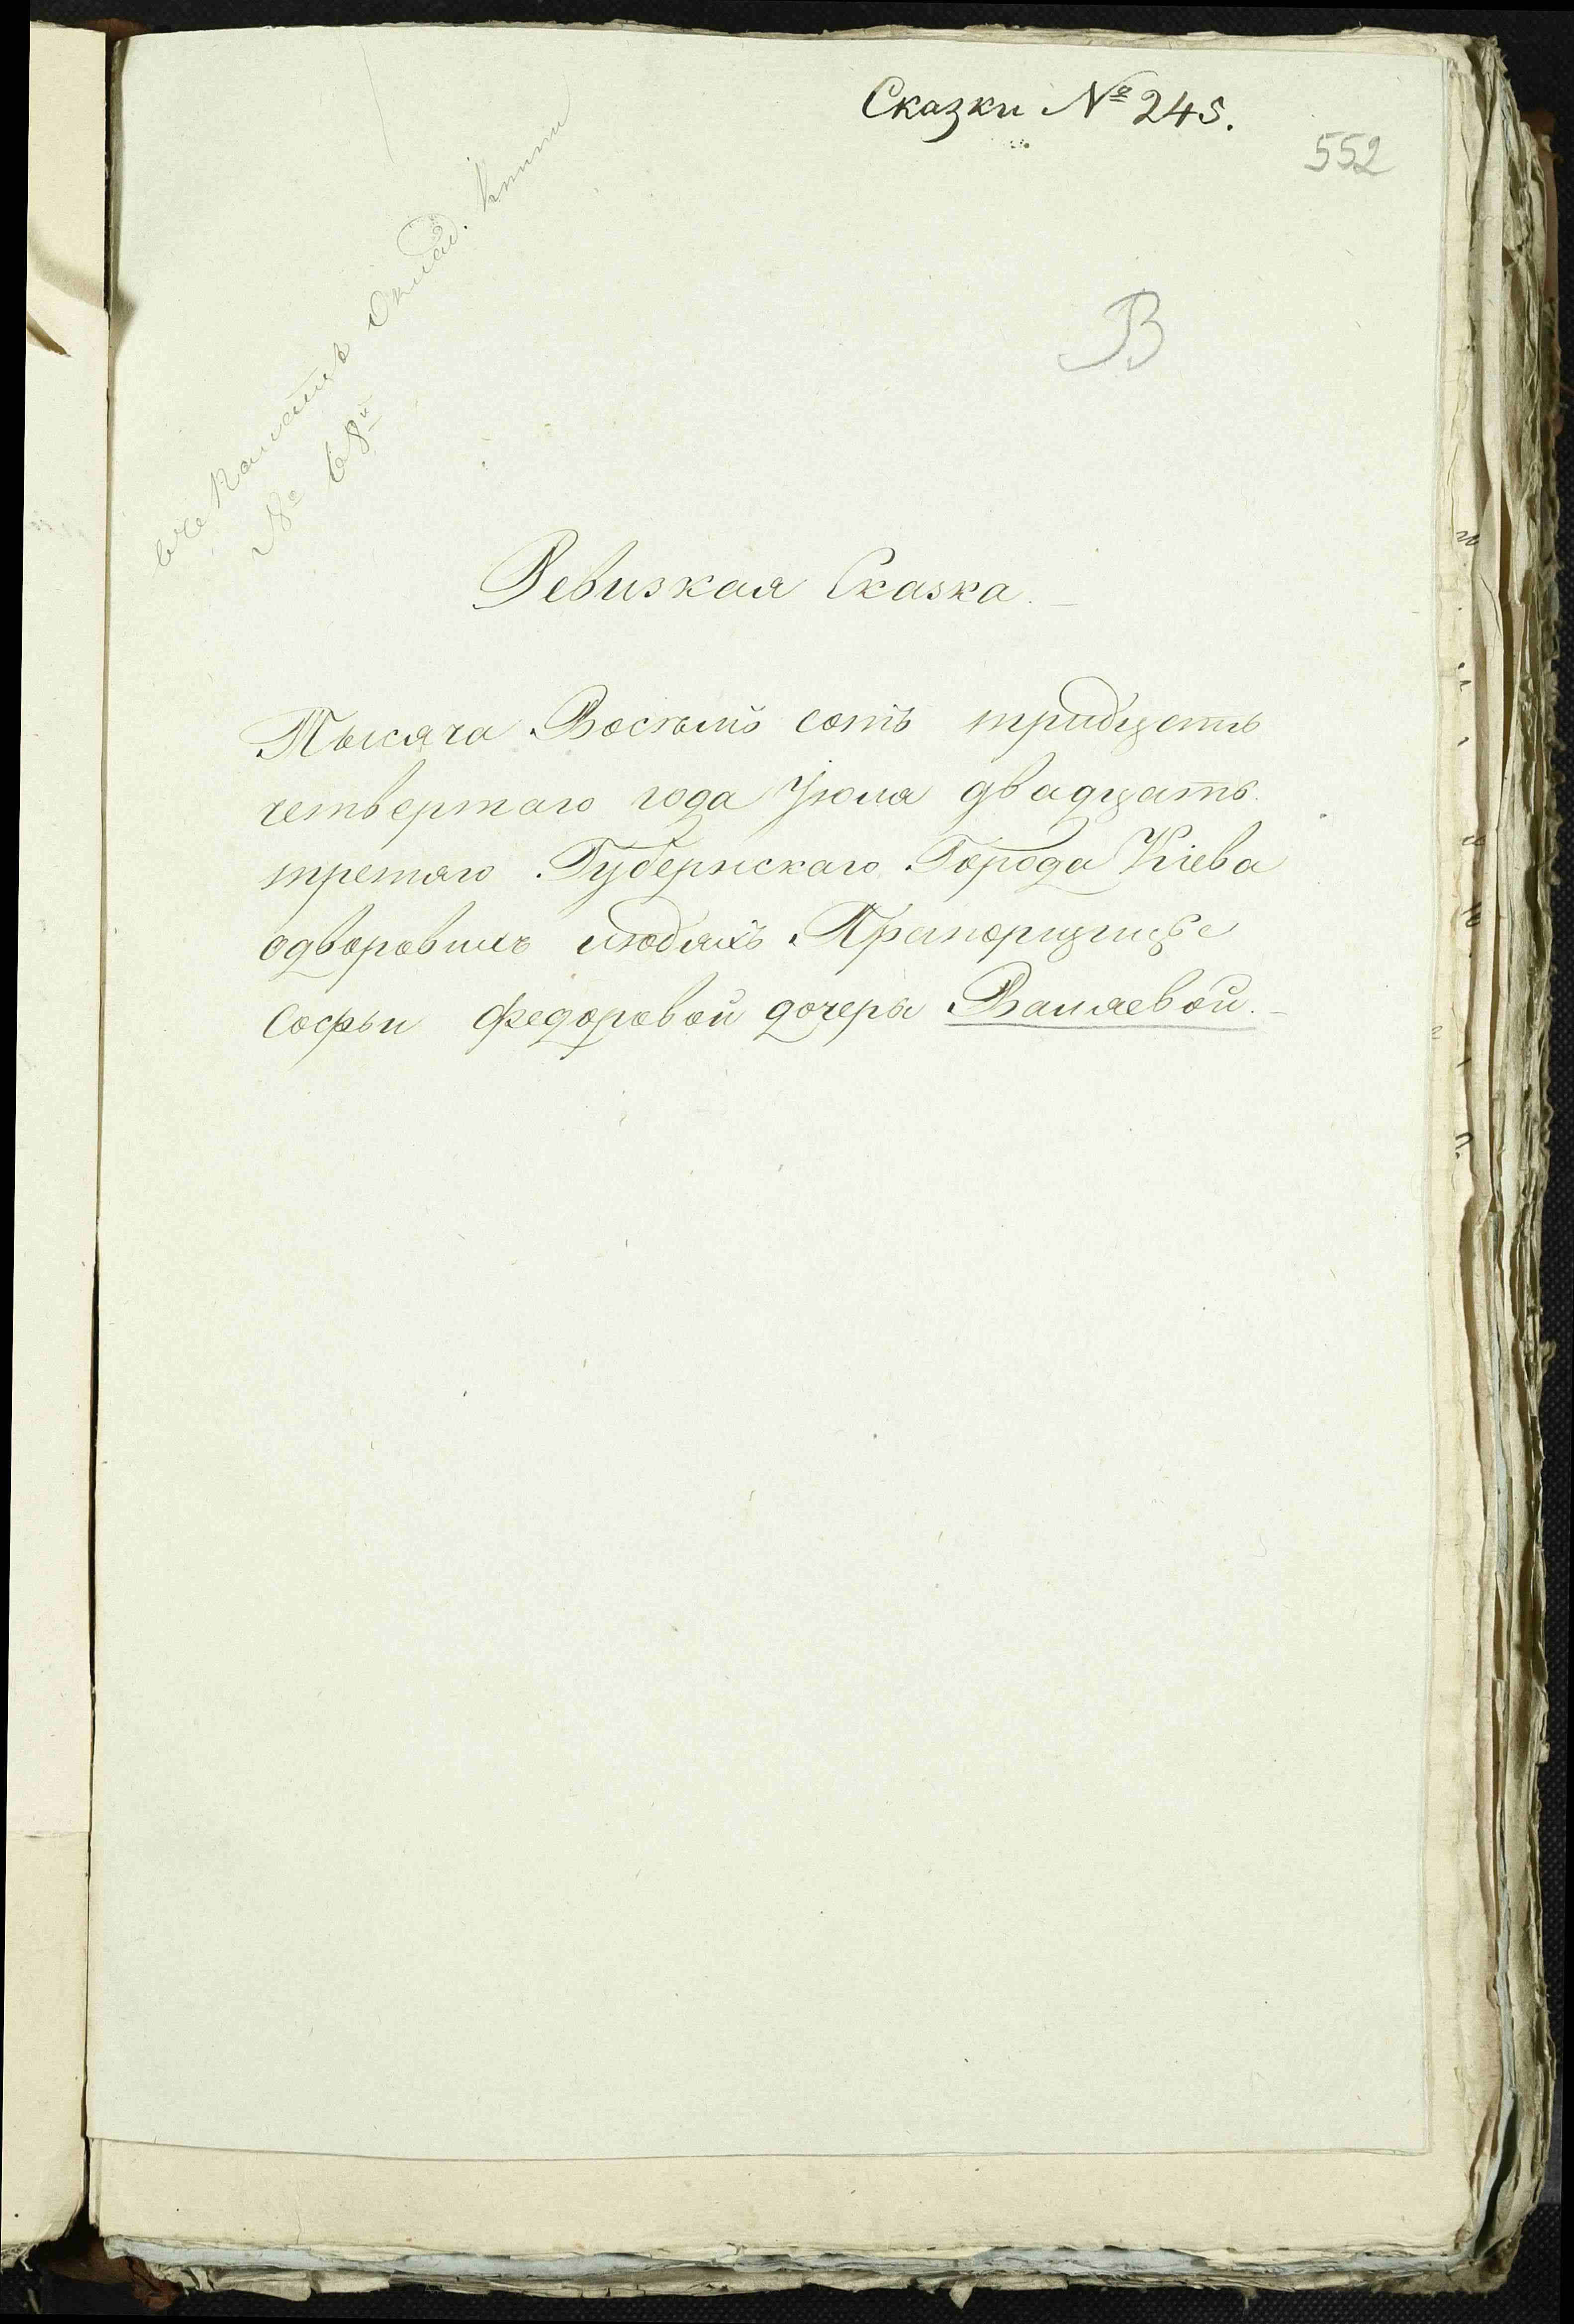 Сказки № 245.
552
В
№ 68й
Ревизкая Сказка.
Тысяча Восемъ сотъ тридцать
четвертаго года Іюля двадцать
третяго Губернскаго Города Кіева
одворовыхъ людяхъ Прапорщицы
Софьи Федоровой дочери Валяевой.